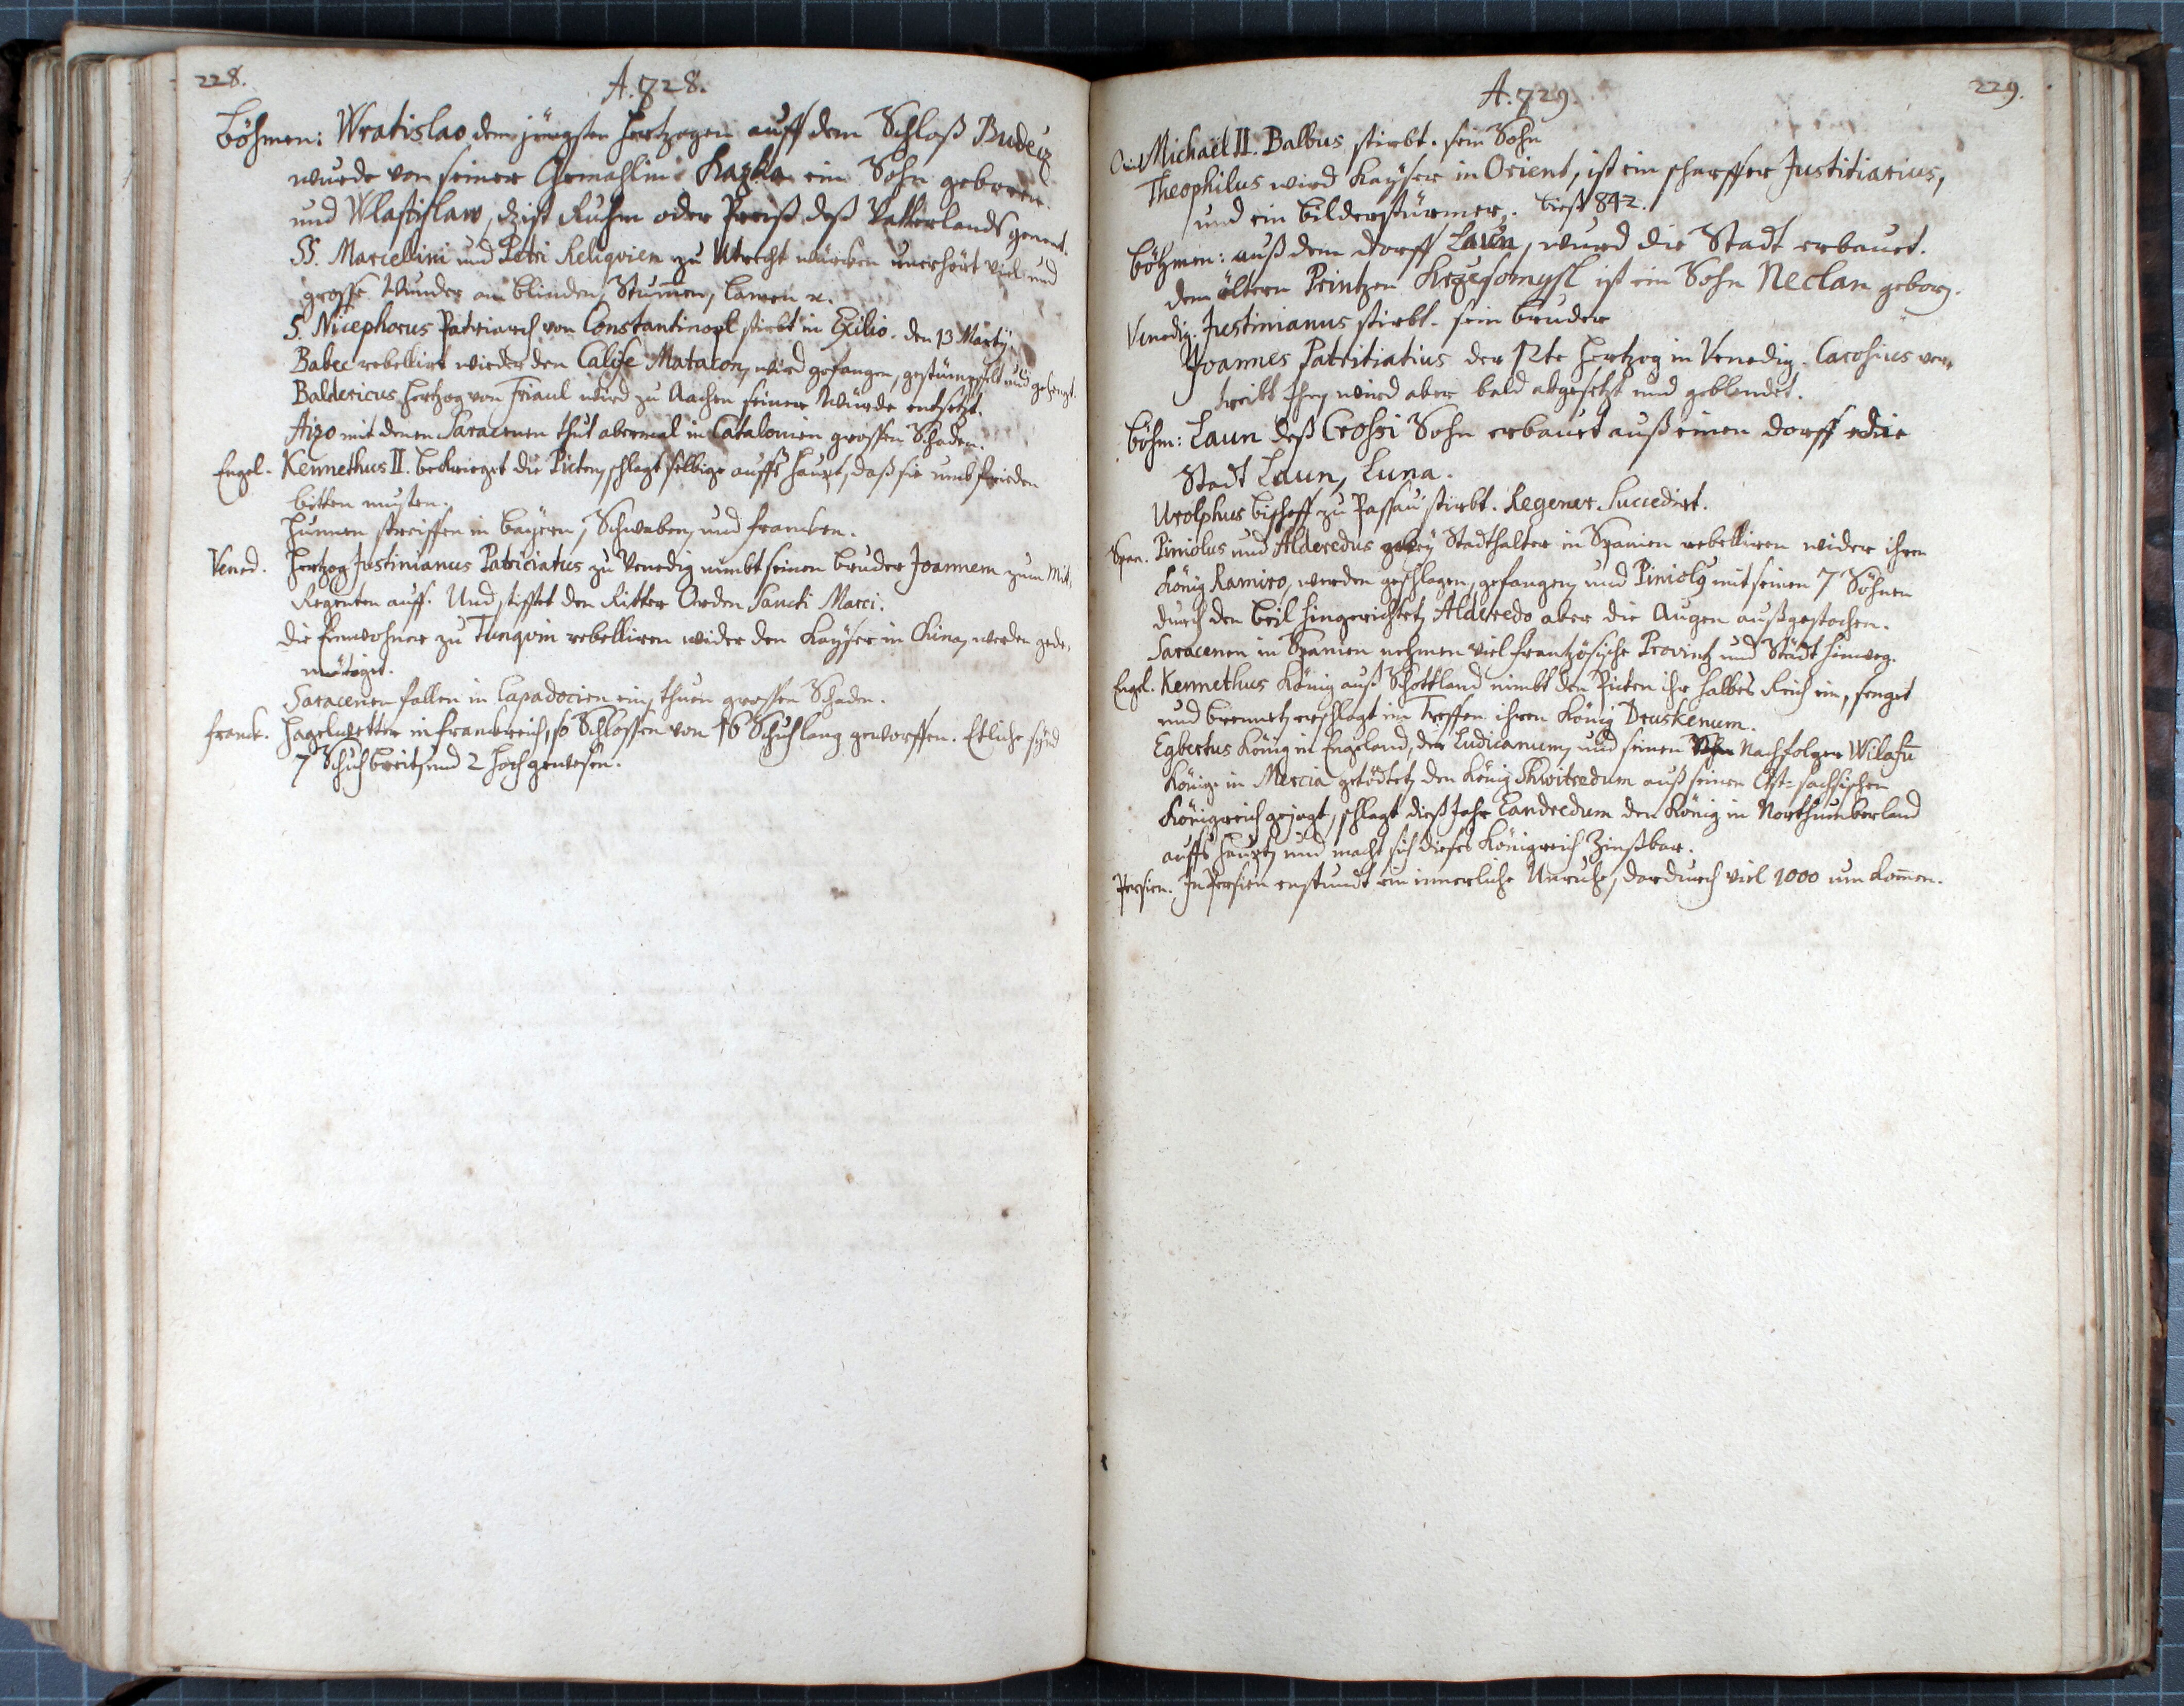 228.
A. 828.
Böhmen: Wratislao dem jüngsten Hertzogen auff dem Schloß Budecz
wurde von seiner Gemahlin Kazka ein Sohn geboren.
und Wlastislaw, dz ist Ruhm oder Preiß deß Vatterlands genent.
SS. Marcellini und Petri Reliqvien zu Utrecht würcken unerhört viel und
grosse Wunder an blinden, Stummen, lamen ꝛc.
S. Nicephorus Patriarch von Constantinopl stirbt in Exilio. den 13 Martÿ.
Babec rebellirt wieder den Calife Matacon, wird gefangen, gestümpffelt und gehengt.
Baldericus Hertzog von Friaul wird zu Aachen seiner Würde entsetzt.
Aizo mit denen Saracenen thut abermal in Catalonien grossen Schaden.
Engel. Kennethus II. bekrieget die Picten, schlagt selbige auffs Haupt, daß sie umb frieden
bitten musten.
Hunnen streiffen in Bayern, Schwaben, und francken.
Vened. Hertzog Justinianus Patriciatus zu Venedig nimbt seinen bruder Joannem zum Mit,
Regenten auff. Und stifftet den Ritter Orden Sancti Marci.
die Einwohner zu Tunqvin rebelliren wider den Kayser in Kina, werden gede,
mütiget.
Saracenen fallen in Capadocien ein, thuen grossen Schaden.
Franck. Hagelwetter in franckreich, so Schlossen von 16 Schuch lang geworffen. Etliche sÿnd
7 Schuch breit, und 2 hoch gewesen.
229.
A. 829.
Ori. Michaël II. Balbus stirbt. sein Sohn
Theophilus wird Kayser in Orient, ist ein scharffer Justitiarius,
und ein bilderstürmer. bieß 842.
Böhmen: auß dem dorff Laun, wurd die Stadt erbauet.
dem ältern Printzen Krzesomysl ist ein Sohn Neclan geborn.
Venedig: Justinianus stirbt. sein bruder
Joannes Patritiatius der 12te Hertzog in Venedig. Carosius ver,
treibt Ihn, wird aber bald abgesetzt und geblendet.
Böhm: Laun deß Crossi Sohn erbauet auß einen dorff die
Stadt Laun, Luna.
Urolphus bischoff zu Passau stirbt. Regener Succedirt.
Span. Piniolus und Alderedus zwey Stadthalter in Spanien rebelliren wider ihren
König Ramiro, werden geschlagen, gefangen, und Piniolus mit seinen 7 Söhnen
durch den beil hingerichtet, Alderedo aber die Augen außgestochen.
Saracenen in Spanien nehmen viel frantzösische Provintz und Städt hinweg.
Engel. Kennethus König auß Schottland nimbt den Picten ihr halbes Reich ein, senget
und brennet, erschlagt im Treffen ihren König Druskenum.
Egbertus König in Engeland, der Ludicanum, und seinen Nachfolger Wilafū
Könige in Mercia getödtet, den König Shwitredum auß seinen Ost-sachsischen
Königreich gejagt, schlagt dieß Jahr Eandredum den König in Northumberland
auffs haupt, und macht sich dieses Königreich Zinßbar.
Persien. In Persien enstundt ein innerliche Unruhe, dardurch viel 1000 um komen.